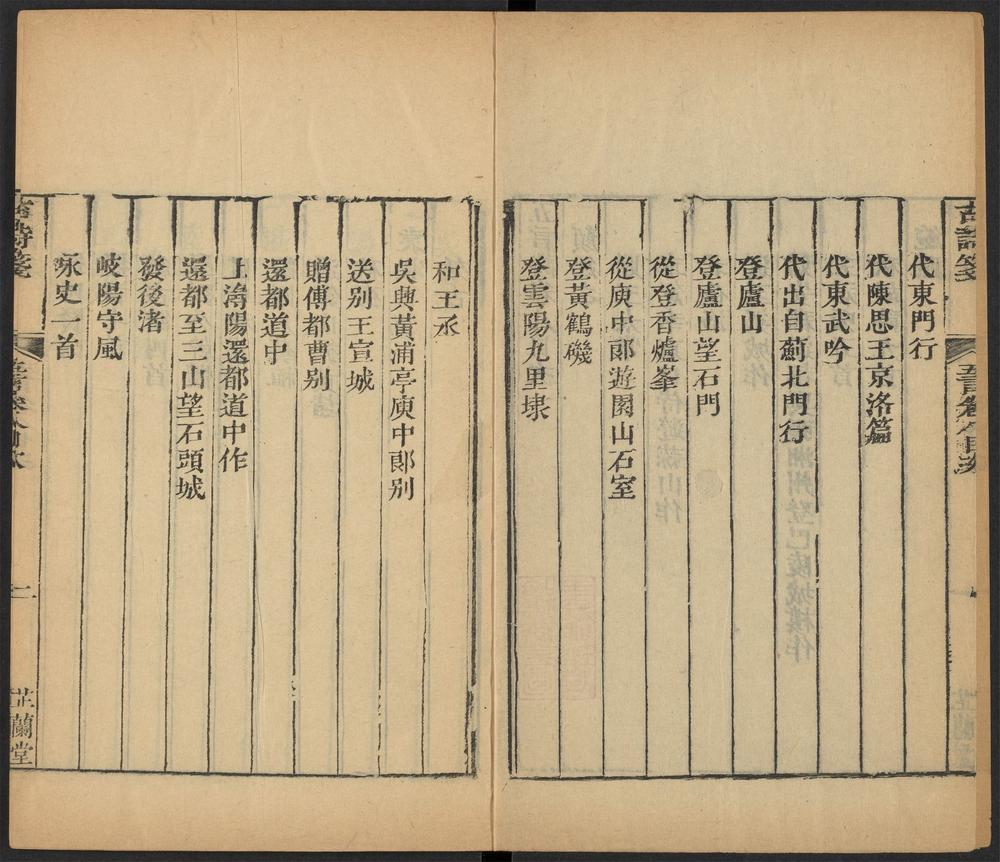 古詩箋
代東門行
代陳思王京洛篇
代東武吟
代出自薊北門行
登廬山
登廬山望石門
從登香爐峯
從庾中郎遊園山石室
登黃鶴磯
登雲陽九里埭
和王丞
吳興黃浦亭庾中郎别
送别王宣城
贈傅都曹别
還都道中
上潯陽還都道中作
還都至三山望石頭城
發後渚
岐陽守風
咏史一首
古詩箋
二
芷蘭堂